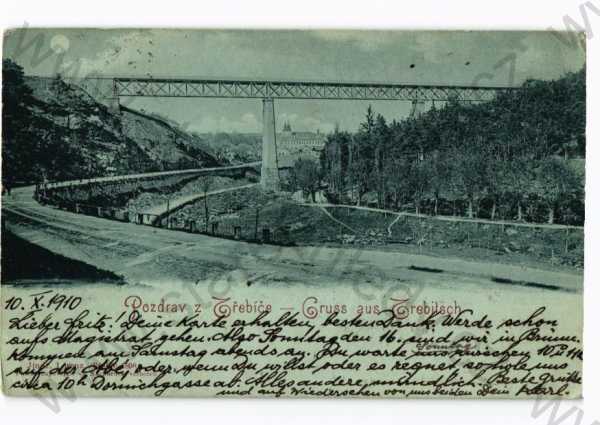 Pozdrav z Třebíče – Gruss aus Trebitsch
10. X. 1910
Lieber Fritz! Deine Karte erhalten, besten Dank. Werde schon
aufs Magistrat gehen. Also Sonntag den 16. sind wir in Brünn.
kommen am Samstag abends an. Du warte uns zwischen 10 u 11h
Sonntag
auf der oder wenn du willst oder es regnet so hole uns
circa 10h Dornichgasse ab. Alles andere mündlich. Beste Grüße
und auf Wiedersehen von uns beiden Dein Karl.